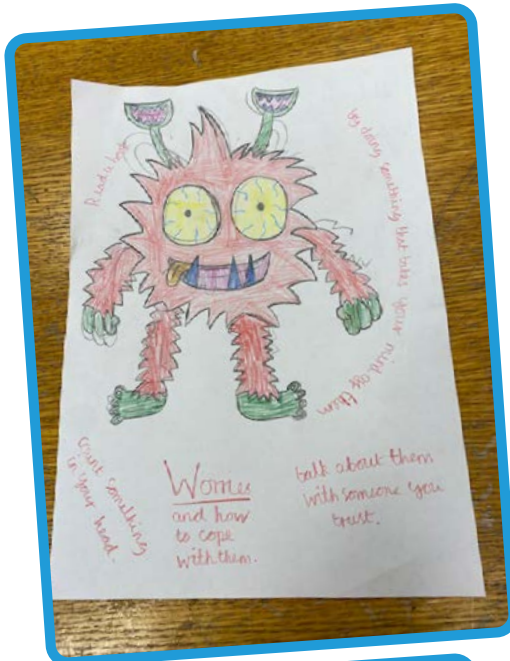 Read a book
by doing something that takes your mind off them
count something
in your head.
Worries
and how
to cope
with them.
talk about them
with someone you
trust.